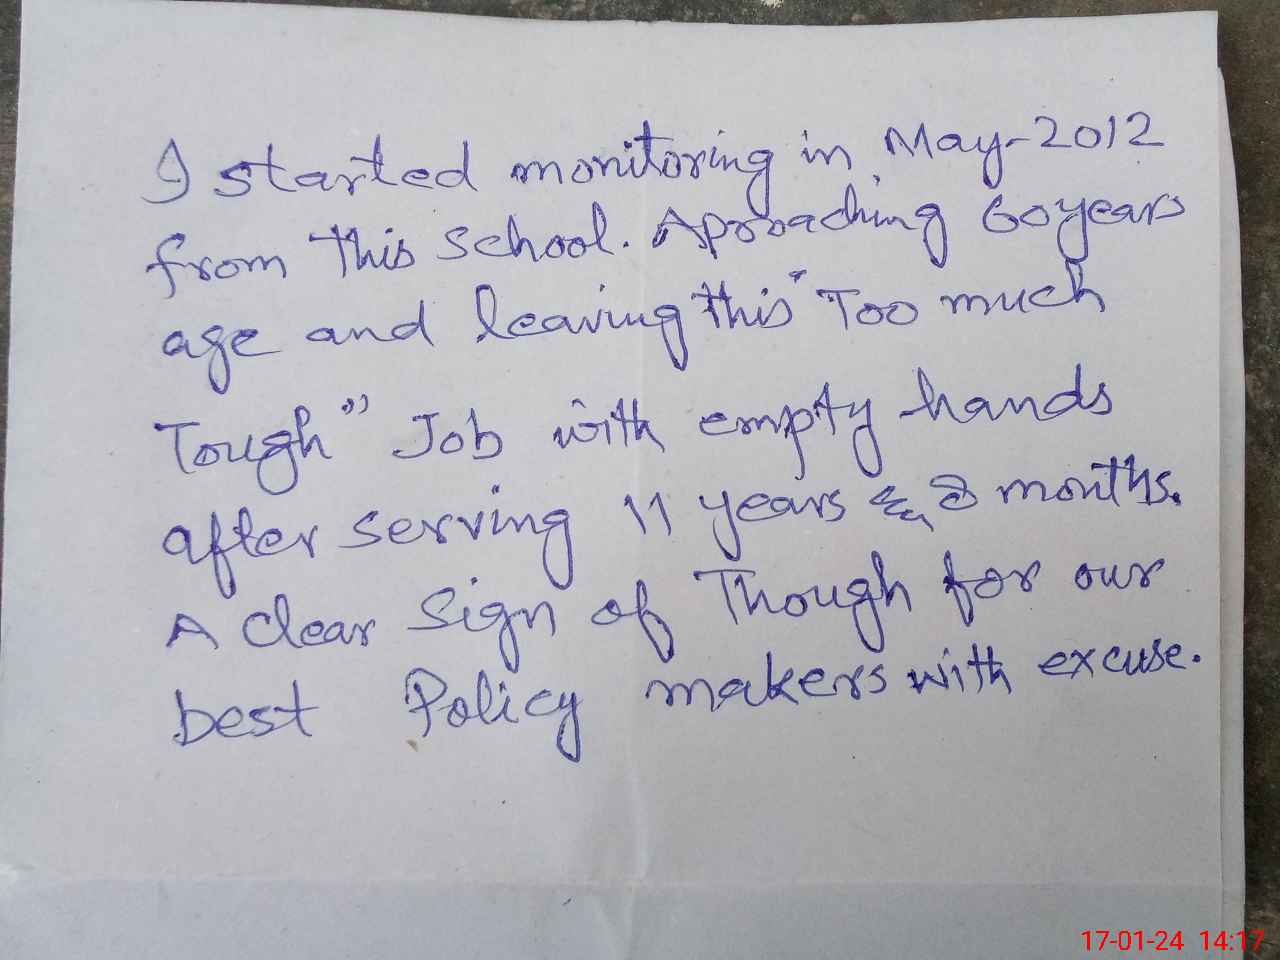 I started monitoring in May-2012
from this school. Aproaching 60 years
age and leaving this "Too much
Tough" Job with empty hands
after serving 11 years & 8 months.
A clear Sign of Though for our
best Policy makers with excuse.
17-01-24 14:17